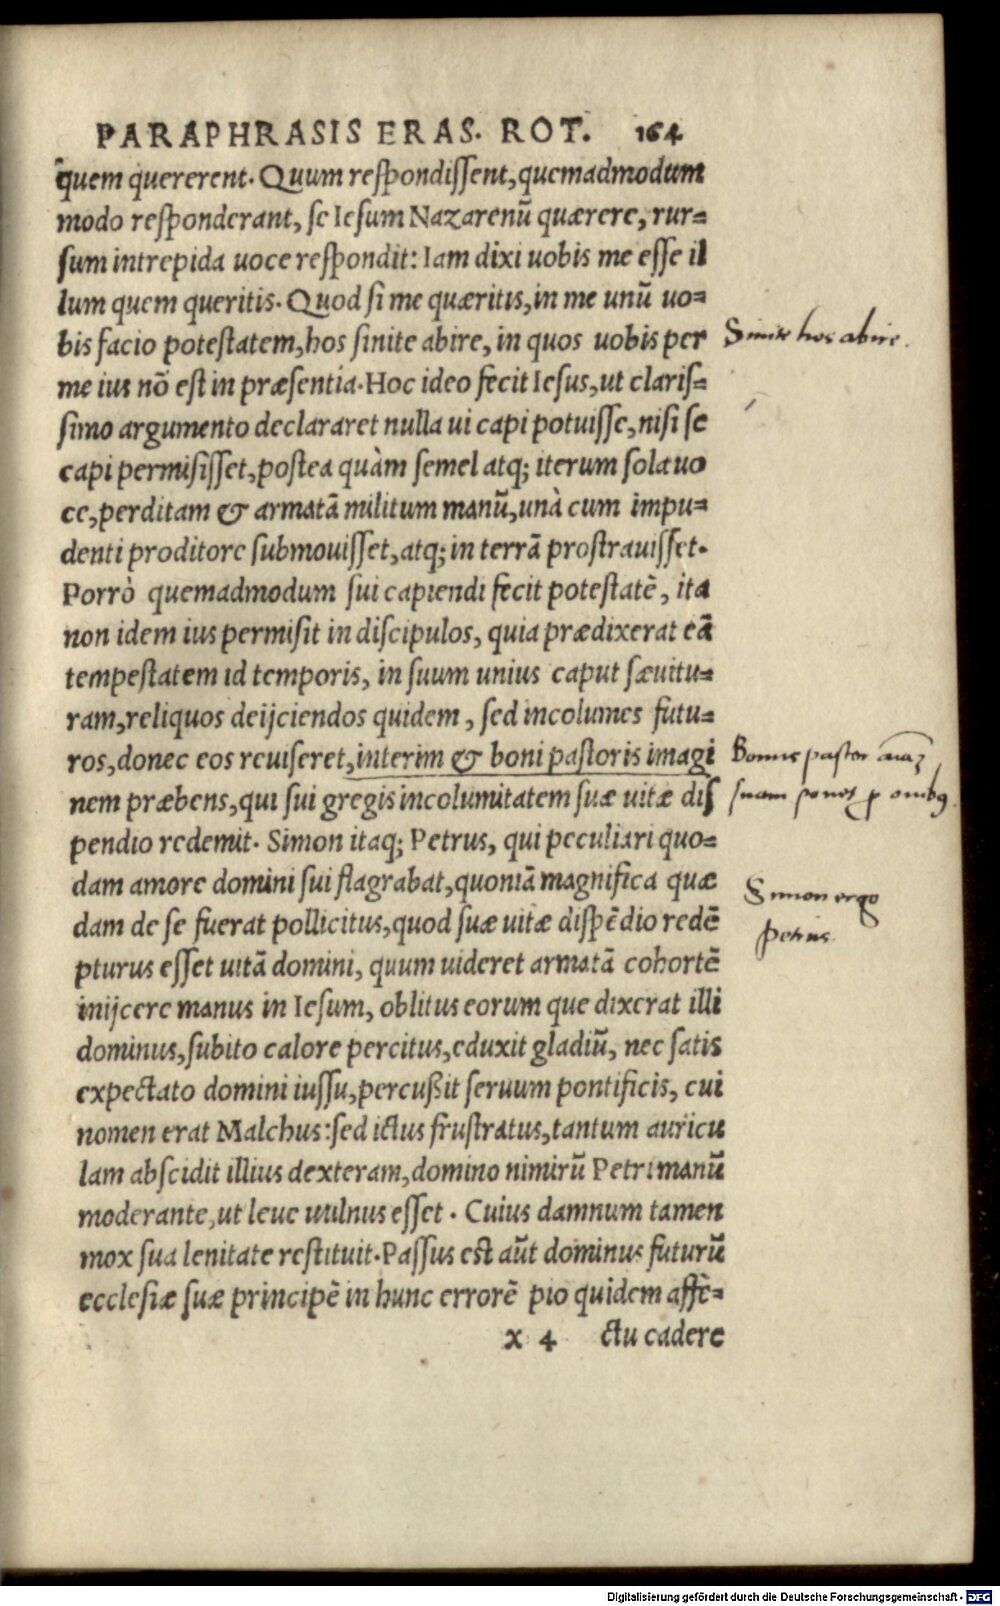 PARAPHRASIS ERAS. ROT. 164
quem quererent. Quum respondissent, quemadmodum
modo responderant, se Iesum Nazarenũ quærere, rur=
sum intrepida uoce respondit: Iam dixi uobis me esse il
lum quem queritis. Quod si me quæritis, in me unũ uo=
bis facio potestatem, hos sinite abire, in quos uobis per
Sinite hos abire.
me ius nõ est in præsentia. Hoc ideo fecit Iesus, ut claris=
simo argumento declararet nulla ui capi potuisse, nisi se
capi permisisset, postea quàm semel atq; iterum sola uo
ce, perditam & armatã militum manũ, unà cum impu=
denti proditore submouisset, atq; in terrã prostrauisset.
Porrò quemadmodum sui capiendi fecit potestatẽ, ita
non idem ius permisit in discipulos, quia prædixerat eã
tempestatem id temporis, in suum unius caput sæuitu=
ram, reliquos deijciendos quidem, sed incolumes futu=
ros, donec eos reuiseret, interim & boni pastoris imagi
Bonus pastor aĩaʒ
nem præbens, qui sui gregis incolumitatem suæ uitæ dis
suam ponet p ouibꝰ.
pendio redemit. Simon itaq; Petrus, qui peculiari quo=
dam amore domini sui flagrabat, quoniã magnifica quæ
Simon ergo
dam de se fuerat pollicitus, quod suæ uitæ dispẽdio redẽ
petrus.
pturus esset uitã domini, quum uideret armatã cohortẽ
inijcere manus in Iesum, oblitus eorum que dixerat illi
dominus, subito calore percitus, eduxit gladiũ, nec satis
expectato domini iussu, percußit seruum pontificis, cui
nomen erat Malchus: sed ictus frustratus, tantum auricu
lam abscidit illius dexteram, domino nimirũ Petri manũ
moderante, ut leue uulnus esset. Cuius damnum tamen
mox sua lenitate restituit. Passus est aũt dominus futurũ
ecclesiæ suæ principẽ in hunc errorẽ pio quidem affe=
x 4 ctu cadere
Digitalisierung gefördert durch die Deutsche Forschungsgemeinschaft - DFG